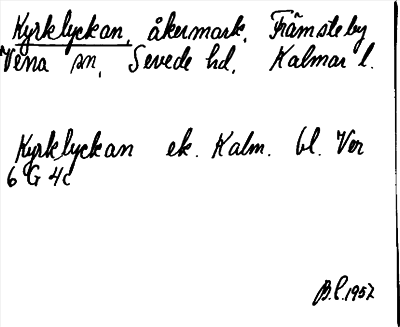 Kyrklyckan, åkermark, Främsteby
Vena sn, Sevede hd, Kalmar l.
Kyrklyckan ek. Kalm. bl. Ver
6 G 4c
B.L. 1957